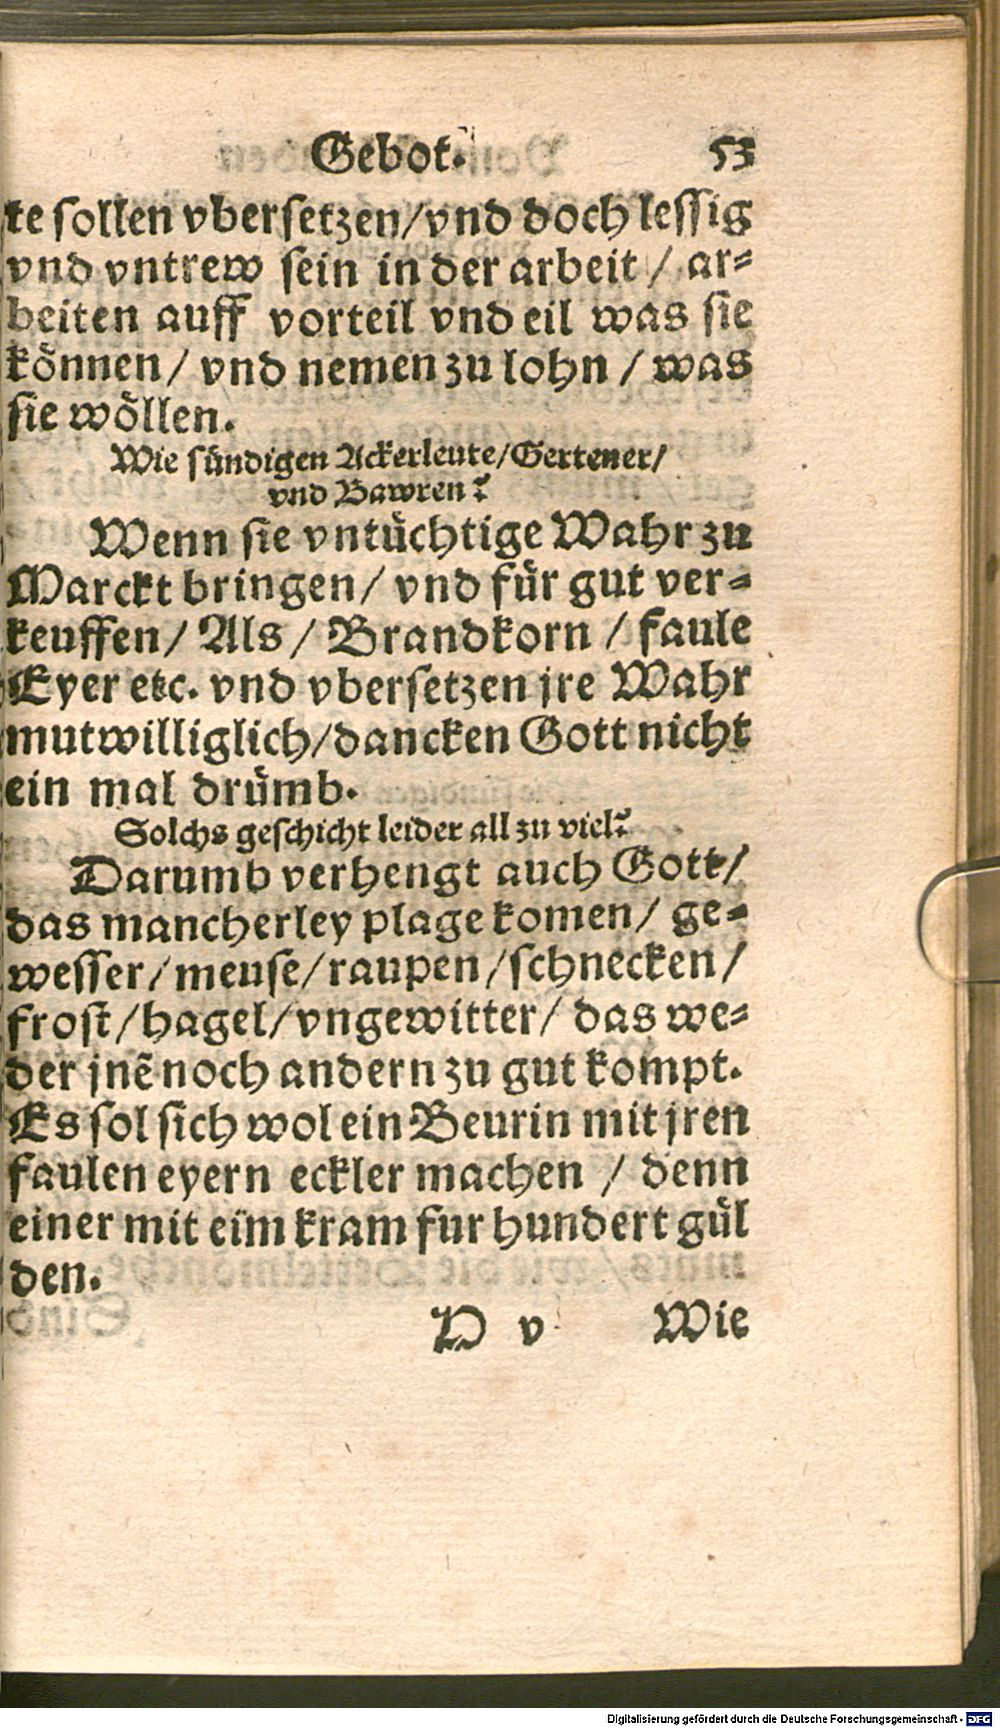 Gebot. 53
te sollen vbersetzen/vnd doch lessig
vnd vntrew sein in der arbeit / ar-
beiten auff vorteil vnd eil was sie
koͤnnen/ vnd nemen zu lohn / was
sie woͤllen.
Wie suͤndigen Ackerleute/Gertener/
vnd Bawren?
Wenn sie vntuͤchtige Wahr zu
Marckt bringen/ vnd fuͤr gut ver-
keuffen/ Als/ Brandkorn / faule
Eyer etc. vnd vbersetzen jre Wahr
mutwilliglich/dancken Gott nicht
ein mal druͤmb.
Solchs geschicht leider all zu viel?
Darumb verhengt auch Gott/
das mancherley plage komen/ ge-
wesser/meuse/raupen/schnecken/
frost/hagel/vngewitter/ das we-
der jnẽ noch andern zu gut kompt.
Es sol sich wol ein Beurin mit jren
faulen eyern eckler machen / denn
einer mit eim kram fur hundert guͤl
den.
v Wie
Digitalisierung gefördert durch die Deutsche Forschungsgemeinschaft - DFG